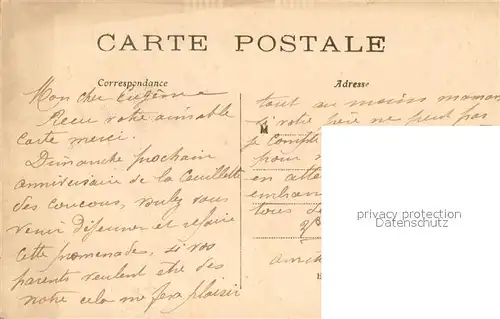 CARTE POSTALE
Correspondance
Mon cher Eugène
Recu votre aimable
carte merci.
Dimanche prochain
anniversaire de la Cueillette
des coucous, voulez vous
venir déjeuner et refaire
cette promenades, si vos
parents veulent etre des
notre cela me fera plaisir
Adresse
tout au moins maman
si votre père ne peut pas
M
je compte
pour
en atte
embra
tous de
amit
privacy protection
Datenschutz